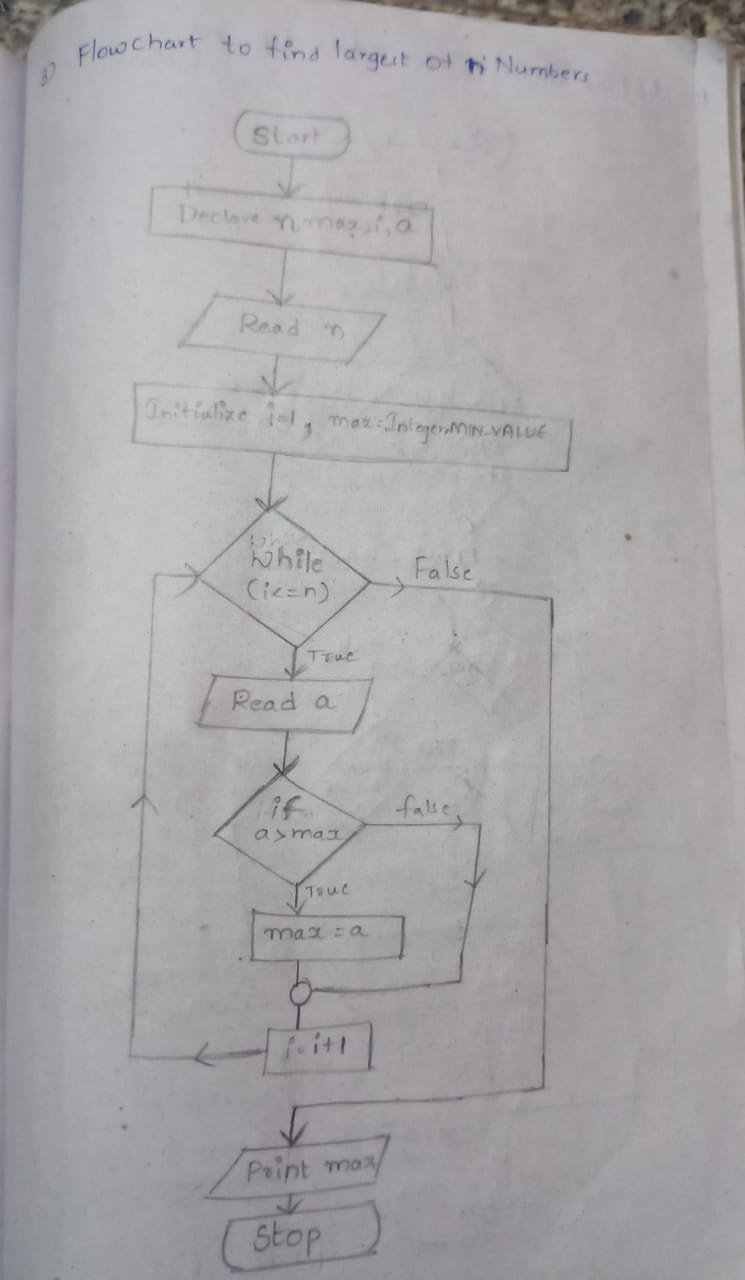 3) Flowchart to find largest of n Numbers
Start
Declare n, max, i, a
Read n
Initialize i=1, max=Integer.MIN_VALUE
While
(i<=n)
False
True
Read a
if
a>max
false
True
max = a
i=i+1
Print max
Stop